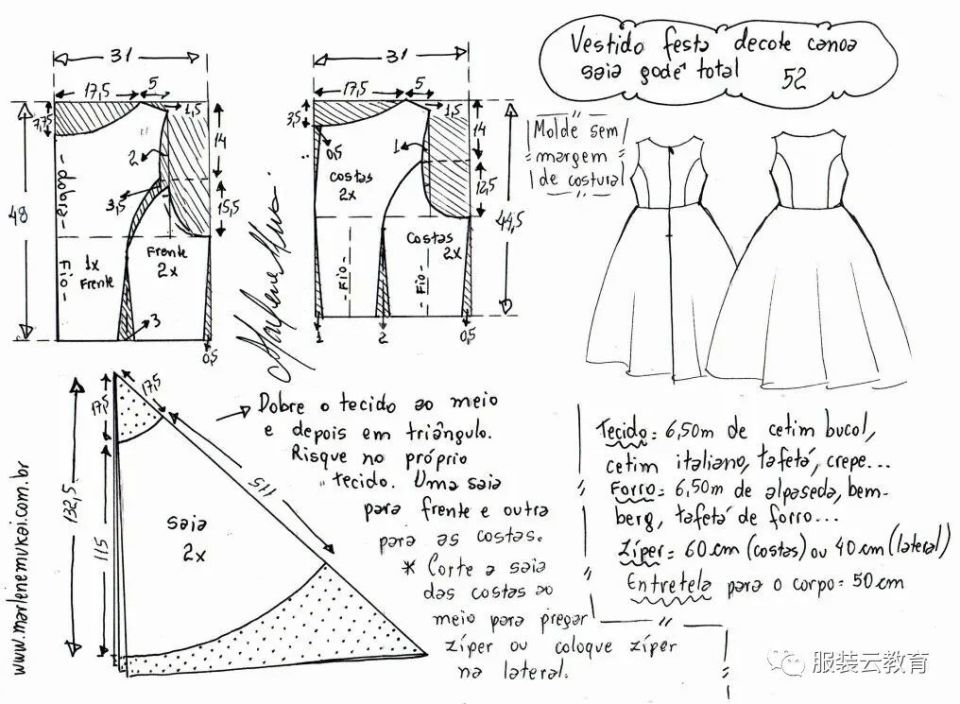 Vestido festa decote canoa
saia godê total 52
31
17,5
5
1,5
7,75
14
2
3,5
15,5
48
dobra
Fio
1x
Frente
Frente
2x
3
0,5
31
17,5
5
1,5
3,5
0,5
14
1
costas
2x
12,5
44,5
Costas
2x
Fio
Fio
1
2
0,5
Molde sem
margem
de costura
Marlene Mukai
17,5
17,5
115
132,5
115
saia
2x
www.marlenemukai.com.br
Dobre o tecido ao meio
e depois em triângulo.
Risque no próprio
tecido. Uma saia
para frente e outra
para as costas.
* Corte a saia
das costas ao
meio para pregar
zíper ou coloque zíper
na lateral.
Tecido = 6,50m de cetim bucol,
cetim italiano, tafetá, crepe...
Forro = 6,50m de alpaseda, bem-
berg, tafetá de forro...
Zíper = 60cm (costas) ou 40cm (lateral)
Entretela para o corpo = 50cm
服装云教育